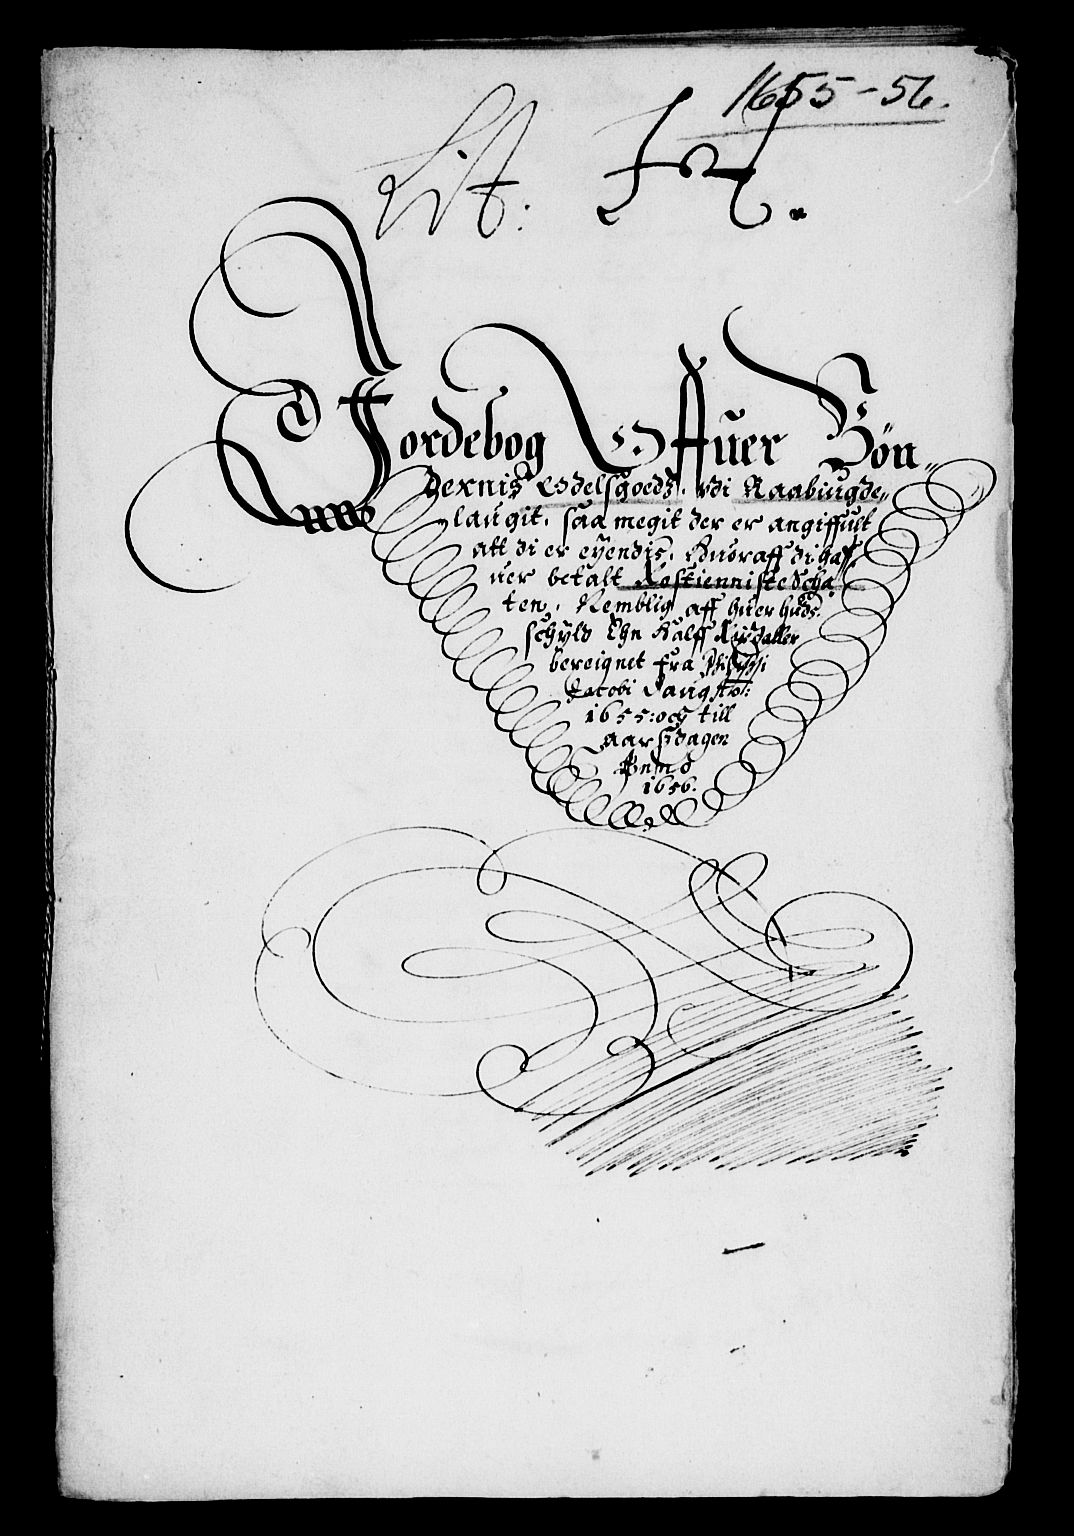 1655-56.
Lit:
Jordebog Offuer Bøn„
dernis Odelsgoedz. Vdi Raabiugde„
laugit, saa megit der er angiffuit
att di er eyendis, Huoraff di haf„
uer betalt Rostienniste Scha„
ten, Nemblig aff huer huds
schyld Ehn Halff Rixdaller
bereignet fra Philippi
Jacobi Daug Ao:
1655: och till
aarsdagen
Anno
1656.